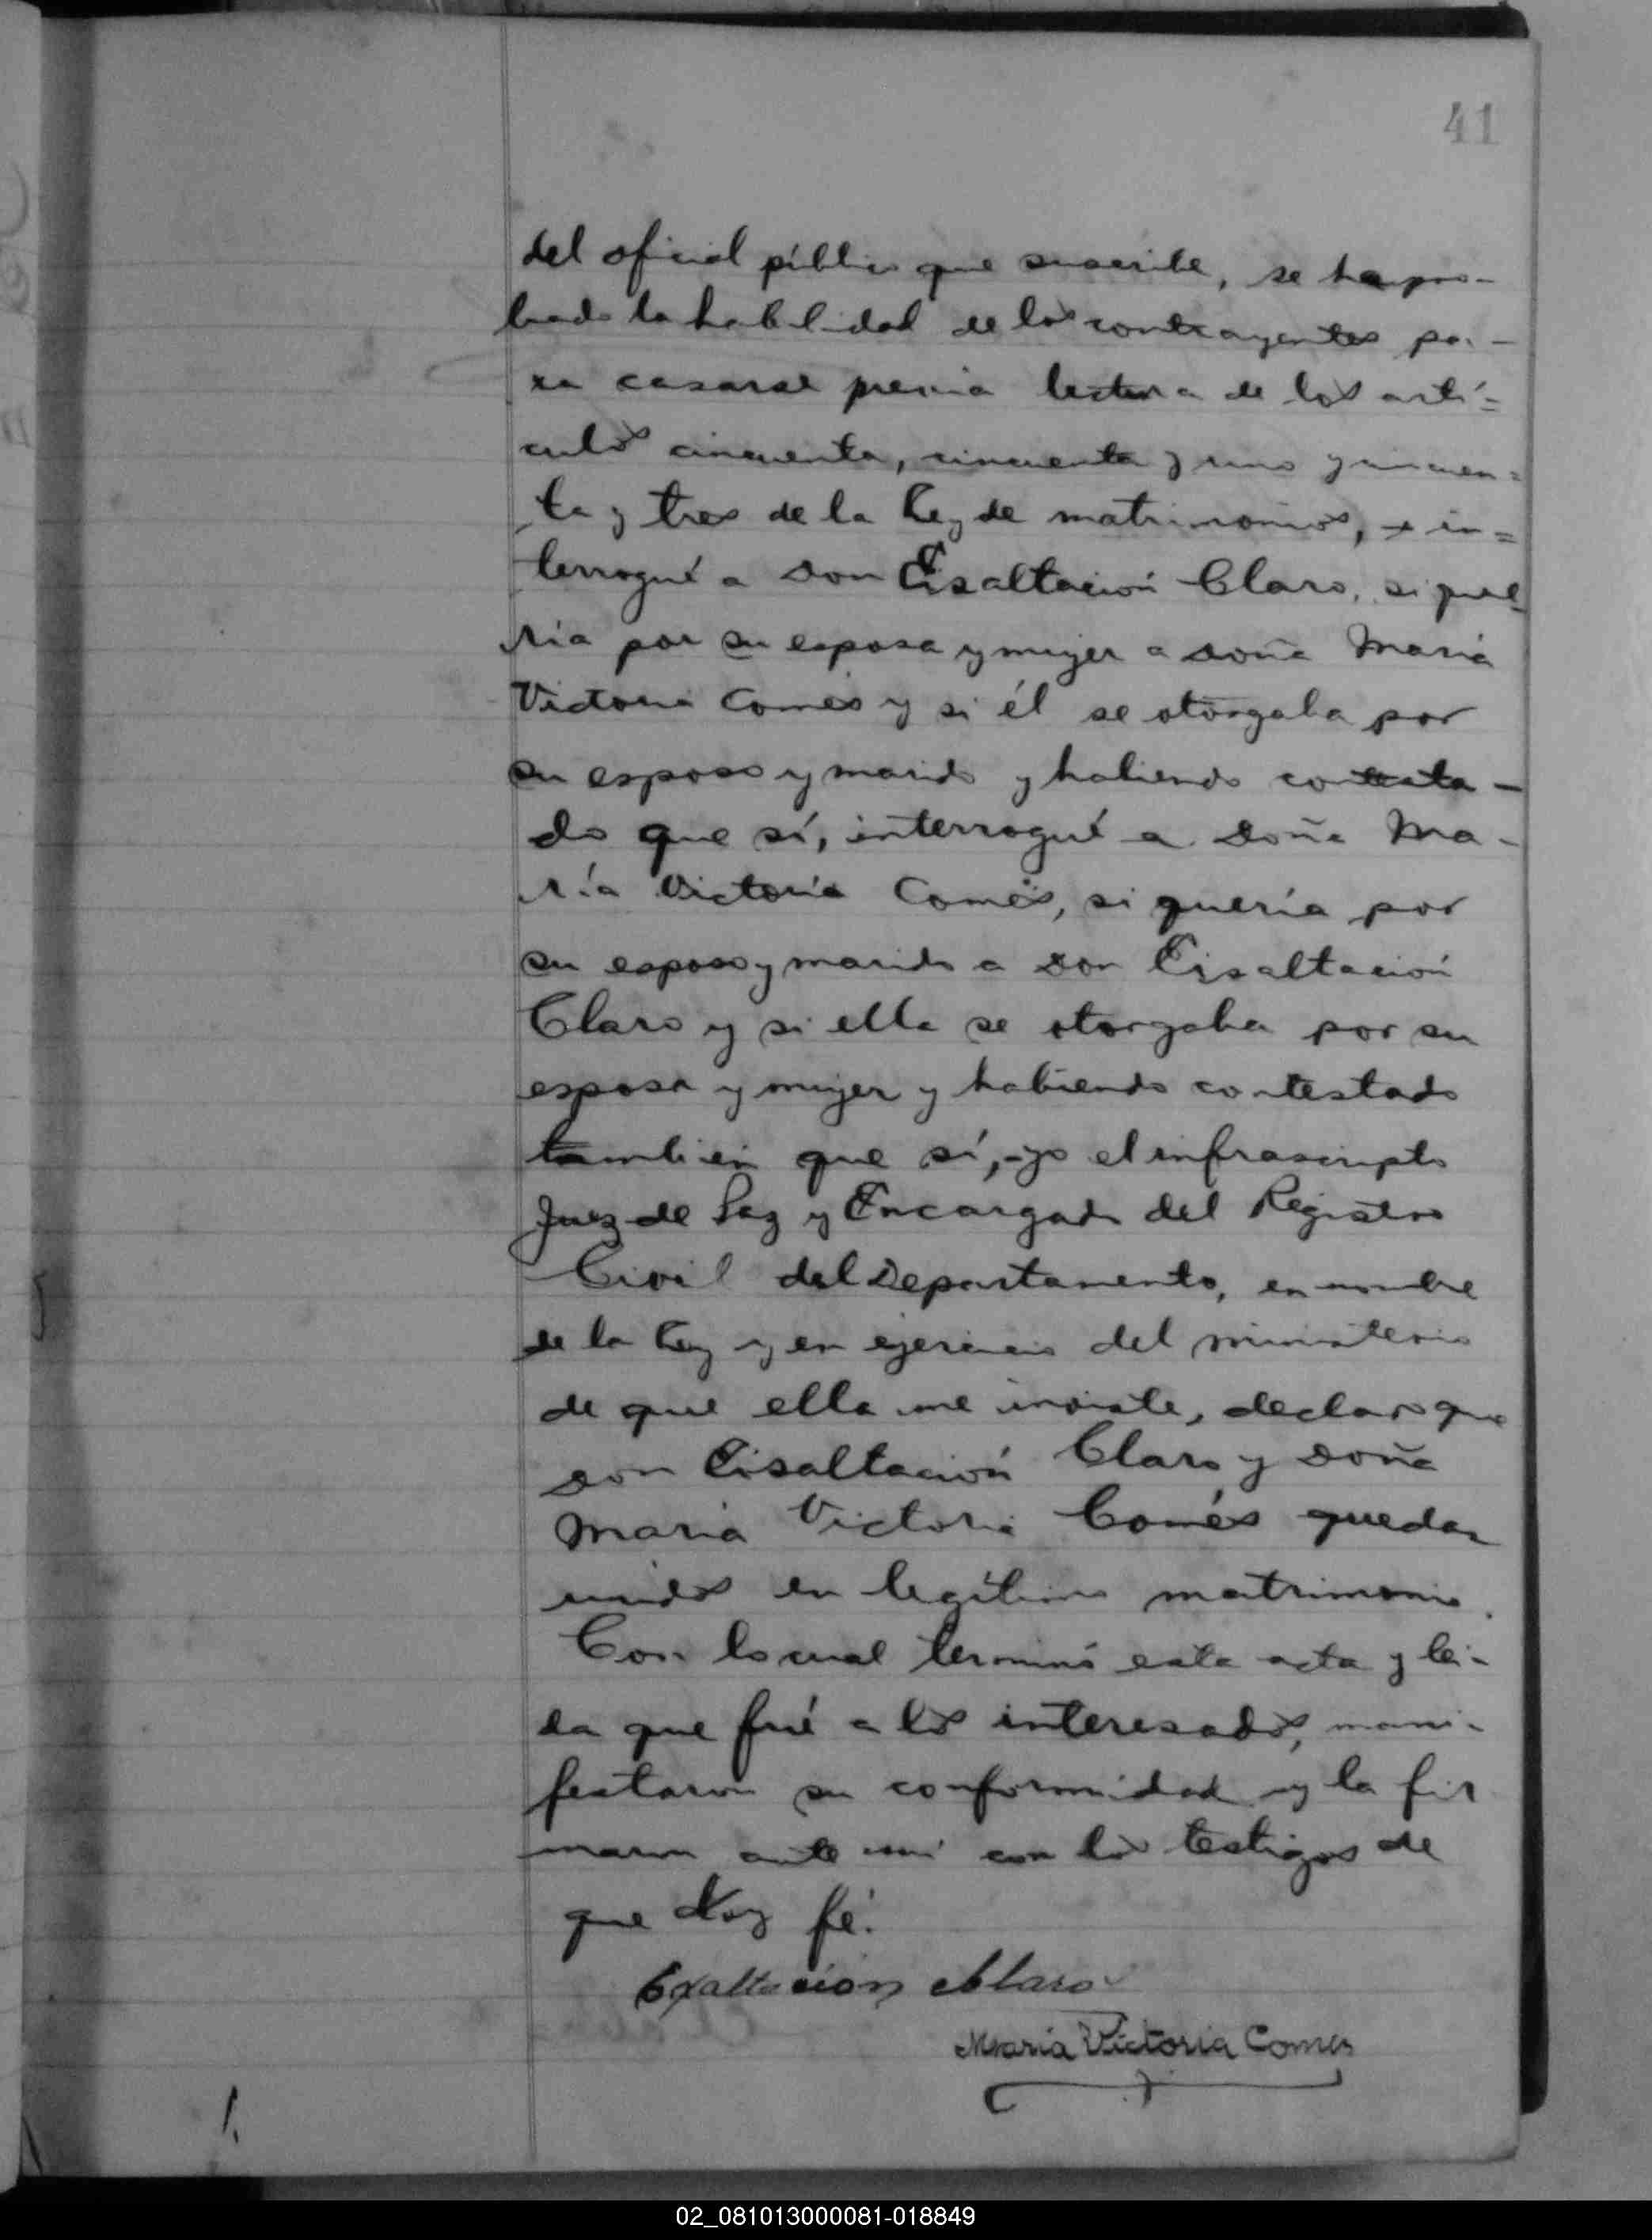 41
del oficial público que suscribe, se ha pro-
bado la habilidad de los contrayentes pa-
ra casarse previa lectura de los artí=
culos cincuenta, cincuenta y uno y cincuen=
ta y tres de la Ley de matrimonios, e in=
terrogué a don Eisaltación Claro, si que
ría por su esposa y mujer a doña María
Victoria Comés y si él se otorgaba por
su esposo y marido y habiendo contesta-
do que sí, interrogué a doña Ma-
ría Victoria Comés, si quería por
su esposo y marido a don Eisaltación
Claro y si ella se otorgaba por su
esposa y mujer y habiendo contestado
también que sí, yo el infrascripto
Juez de Paz y Encargado del Registro
Civil del Departamento, en nombre
de la Ley y en ejercicio del ministerio
de que ella me inviste, declaro que
don Eisaltación Claro y doña
María Victoria Comés quedan
unidos en legítimo matrimonio.
Con lo cual terminó esta acta y leí-
da que fué a los interesados, mani-
festaron su conformidad y la fir
maron ante mí con los testigos de
que doy fé.
Exaltacion Claro
María Victoria Comes
02_081013000081-018849